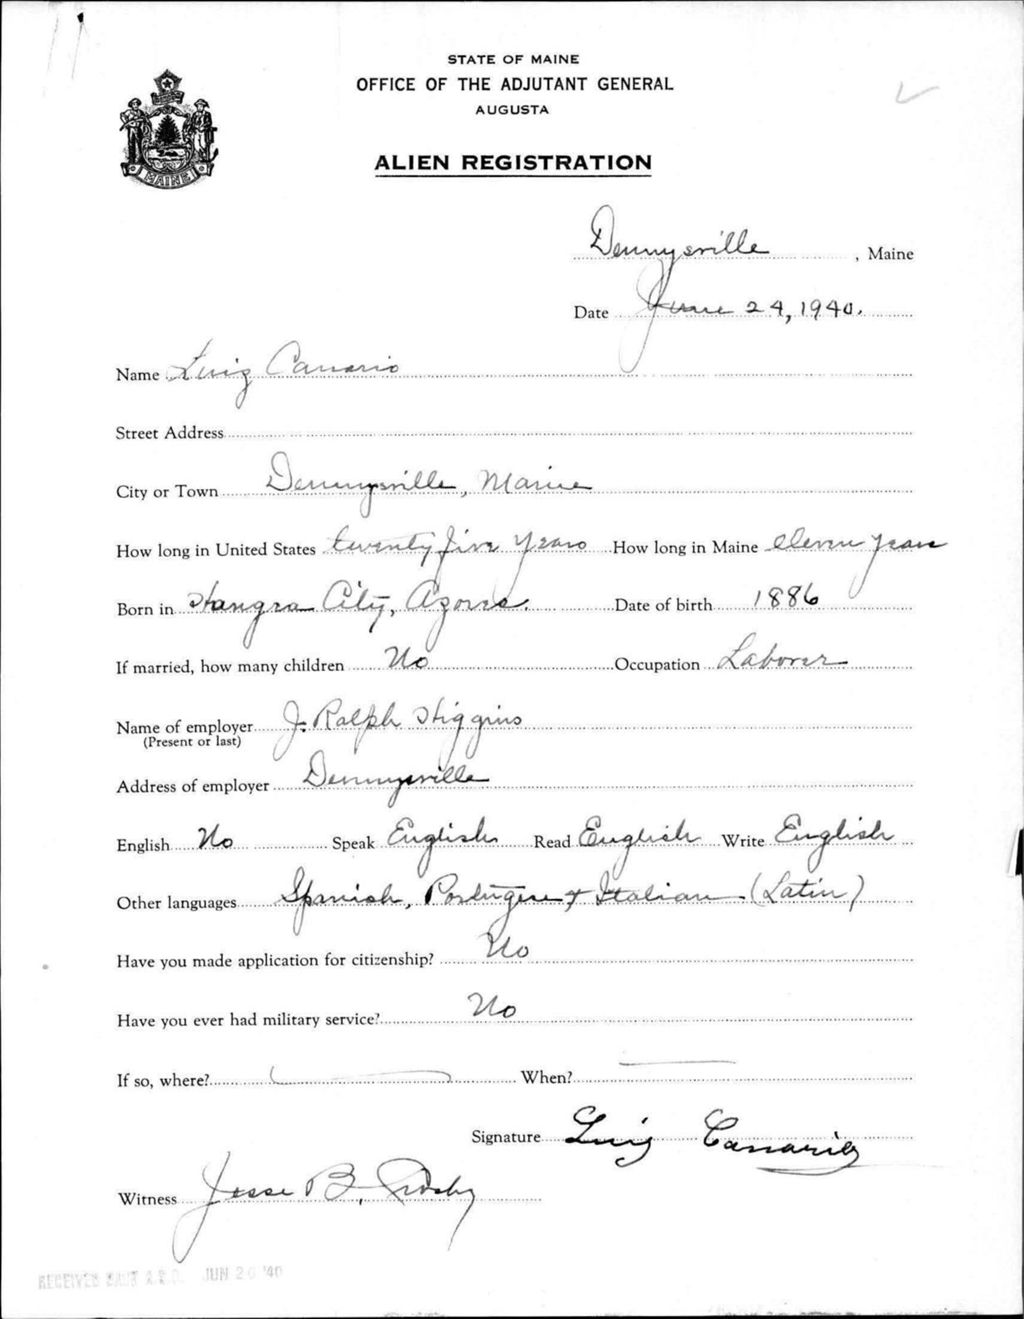 STATE OF MAINE
OFFICE OF THE ADJUTANT GENERAL
AUGUSTA
ALIEN REGISTRATION
MAINE
Dennysville, Maine
Date June 24, 1940.
Name Luiz Canario
Street Address
City or Town Dennysville, Maine
How long in United States twenty five years How long in Maine eleven years
Born in Hangra City, Azores. Date of birth 1886
If married, how many children No Occupation Laborer
Name of employer J. Ralph Higgins
(Present or last)
Address of employer Dennysville
English No Speak English Read English Write English
Other languages Spanish, Portugese & Italian (Latin)
Have you made application for citizenship? No
Have you ever had military service? No
If so, where? When?
Signature Luiz Canario
Witness Jesse B. Crosby
RECEIVED A.G.O. JUN 26 '40